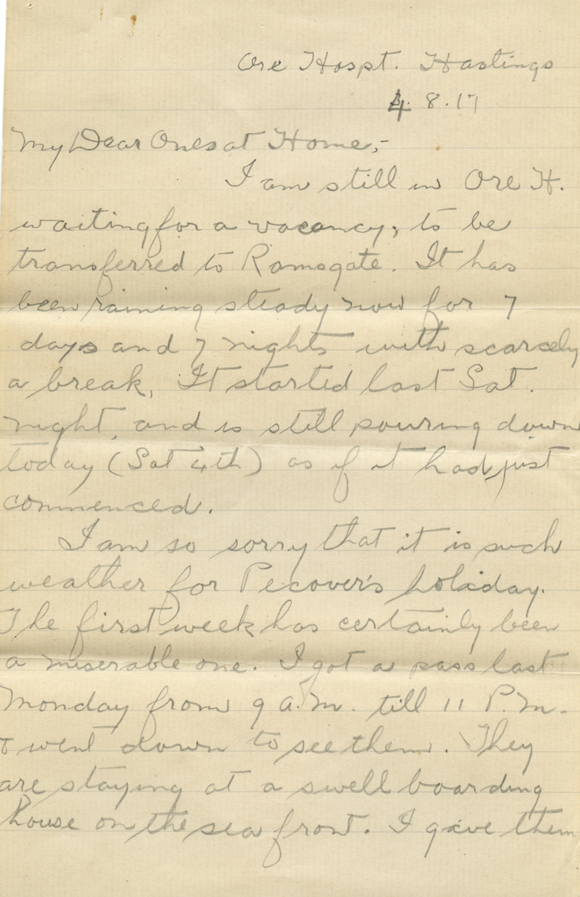 Ore Hospt. Hastings
4.8.17
My Dear Ones at Home,-
I am still in Ore H.
waiting for a vacancy, to be
transferred to Ramsgate. It has
been raining steady now for 7
days and 7 nights with scarcely
a break, It started last Sat.
night, and is still pouring down
today (Sat 4th) as if it had just
commenced.
I am so sorry that it is such
weather for Pecover's holiday.
The first week has certainly been
a miserable one. I got a pass last
Monday from 9 a.m. till 11 P.M.
& went down to see them. They
are staying at a swell boarding
house on the sea front. I gave them